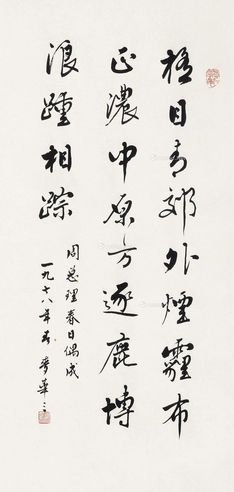 極目青郊外煙霾布
正濃中原方逐鹿博
浪踵相踪
周总理春日偶成
一九七八年春